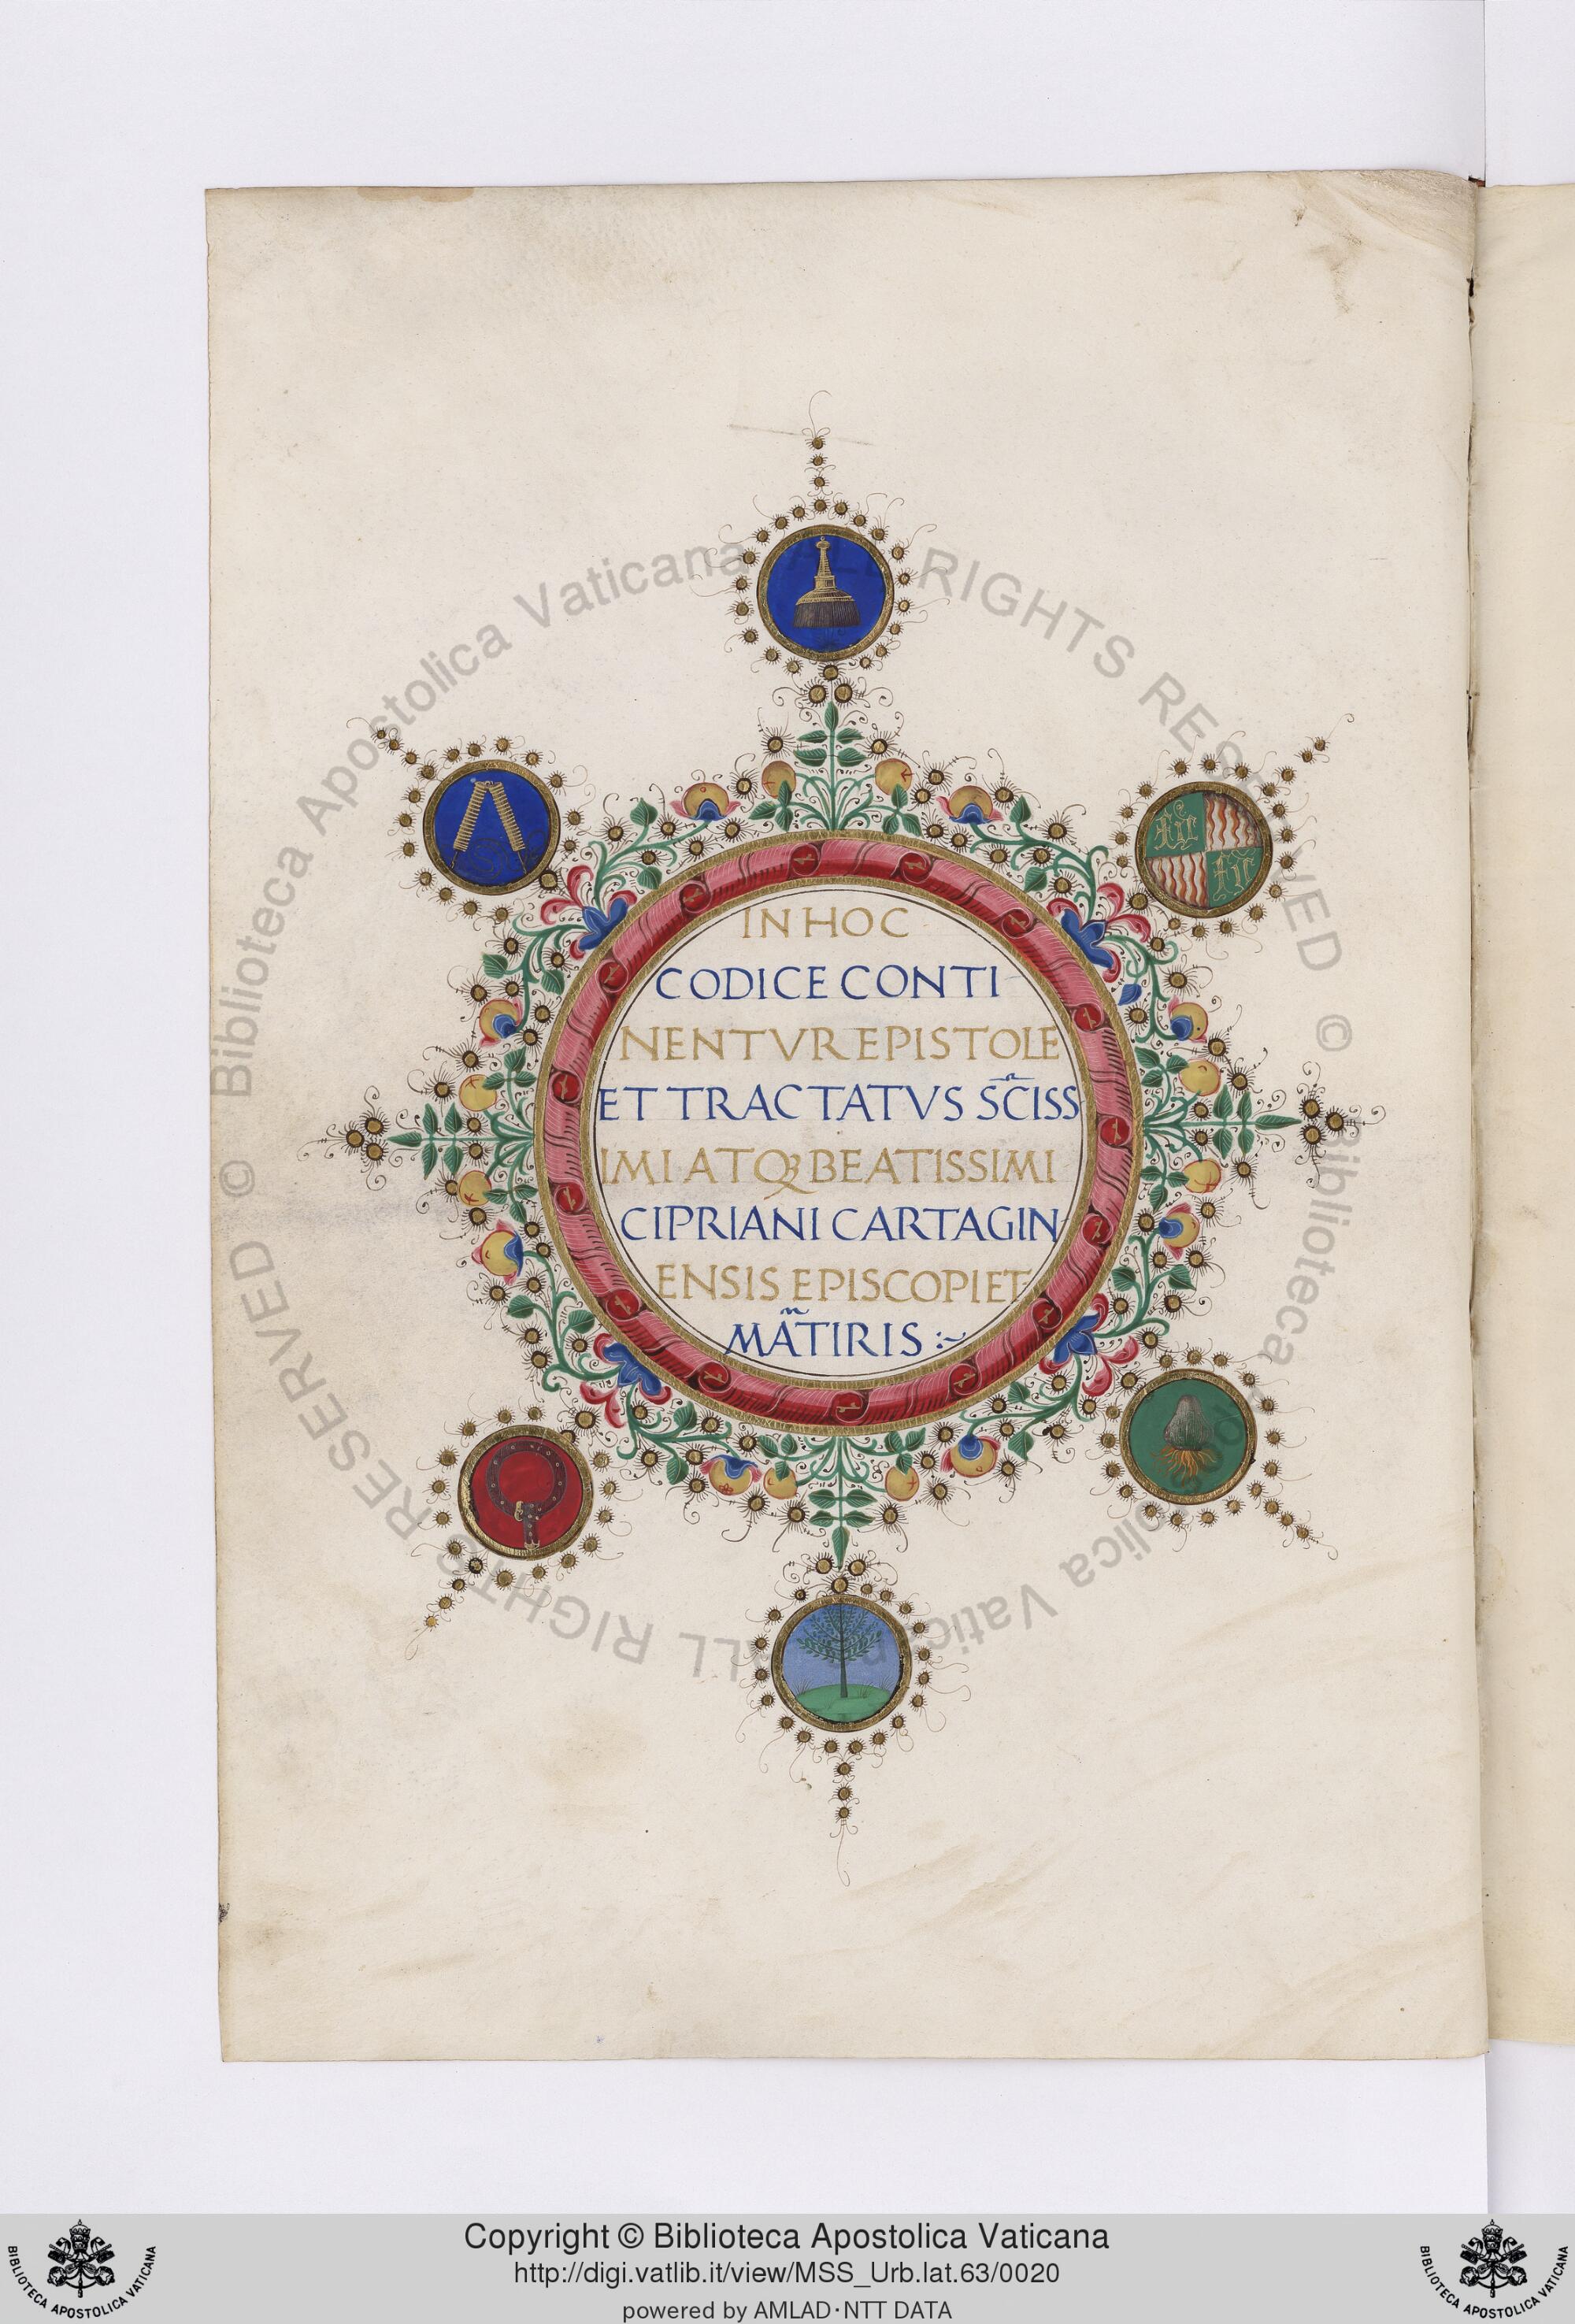 IN HOC
CODICE CONTI
NENTVR EPISTOLE
ET TRACTATVS SC̃ISS
IMI ATQꝫ BEATISSIMI
CIPRIANI CARTAGIN
ENSIS EPISCOPI ET
MÃTIRIS :~
© Biblioteca Apostolica Vaticana ALL RIGHTS RESERVED
© Biblioteca Apostolica Vaticana ALL RIGHTS RESERVED
BIBLIOTECA APOSTOLICA VATICANA
Copyright © Biblioteca Apostolica Vaticana
http://digi.vatlib.it/view/MSS_Urb.lat.63/0020
powered by AMLAD·NTT DATA
BIBLIOTECA APOSTOLICA VATICANA